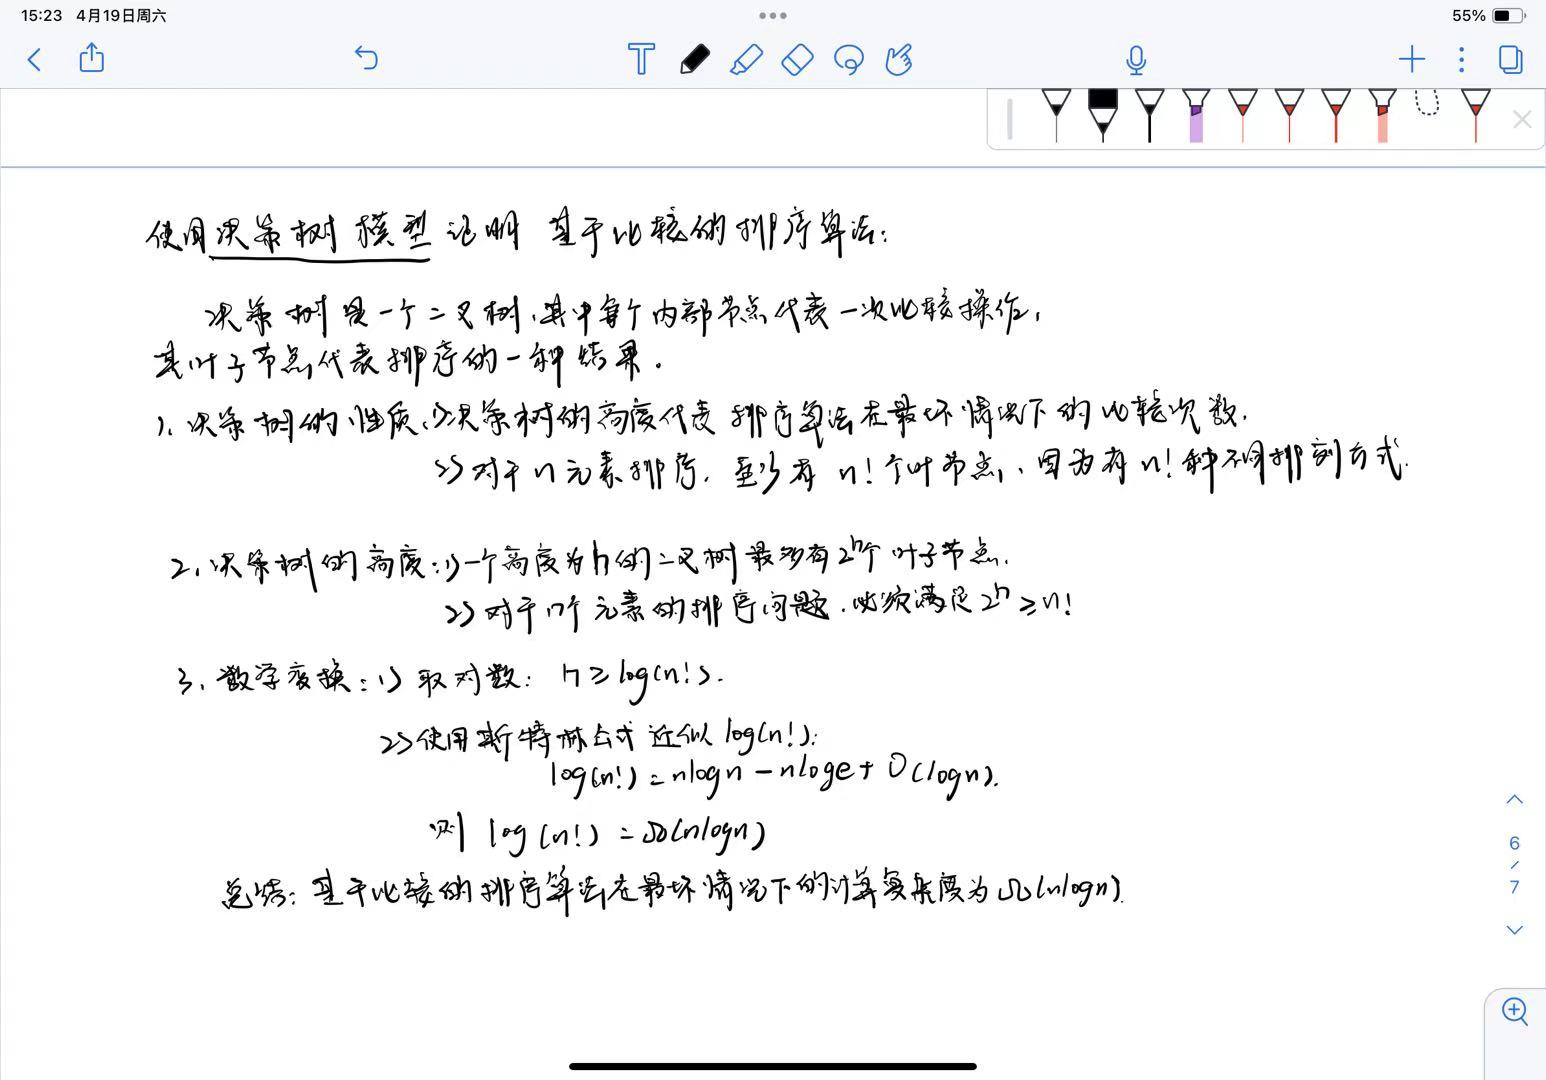 15:23 4月19日周六
55%
使用决策树模型证明 基于比较的排序算法:
决策树是一个二叉树,其中每个内部节点代表一次比较操作,
其叶子节点代表排序的一种结果.
1. 决策树的性质:1)决策树的高度代表排序算法在最坏情况下的比较次数.
2)对于n元素排序,至少有n!个叶节点,因为有n!种不同排列方式.
2. 决策树的高度:1)一个高度为h的二叉树最多有2^h个叶子节点.
2)对于n个元素的排序问题,必须满足2^h≥n!
3. 数学变换:1)取对数: h≥log(n!).
2)使用斯特林公式近似log(n!):
log(n!)=nlogn-nloge+O(logn).
则 log(n!)=Ω(nlogn)
总结:基于比较的排序算法在最坏情况下的计算复杂度为Ω(nlogn).
6
/
7